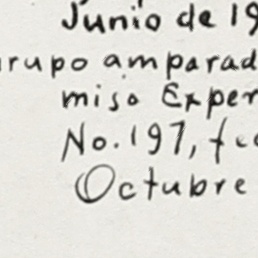 Junio de 19
rupo amparad
miso Exper
No. 197, fec
Octubre